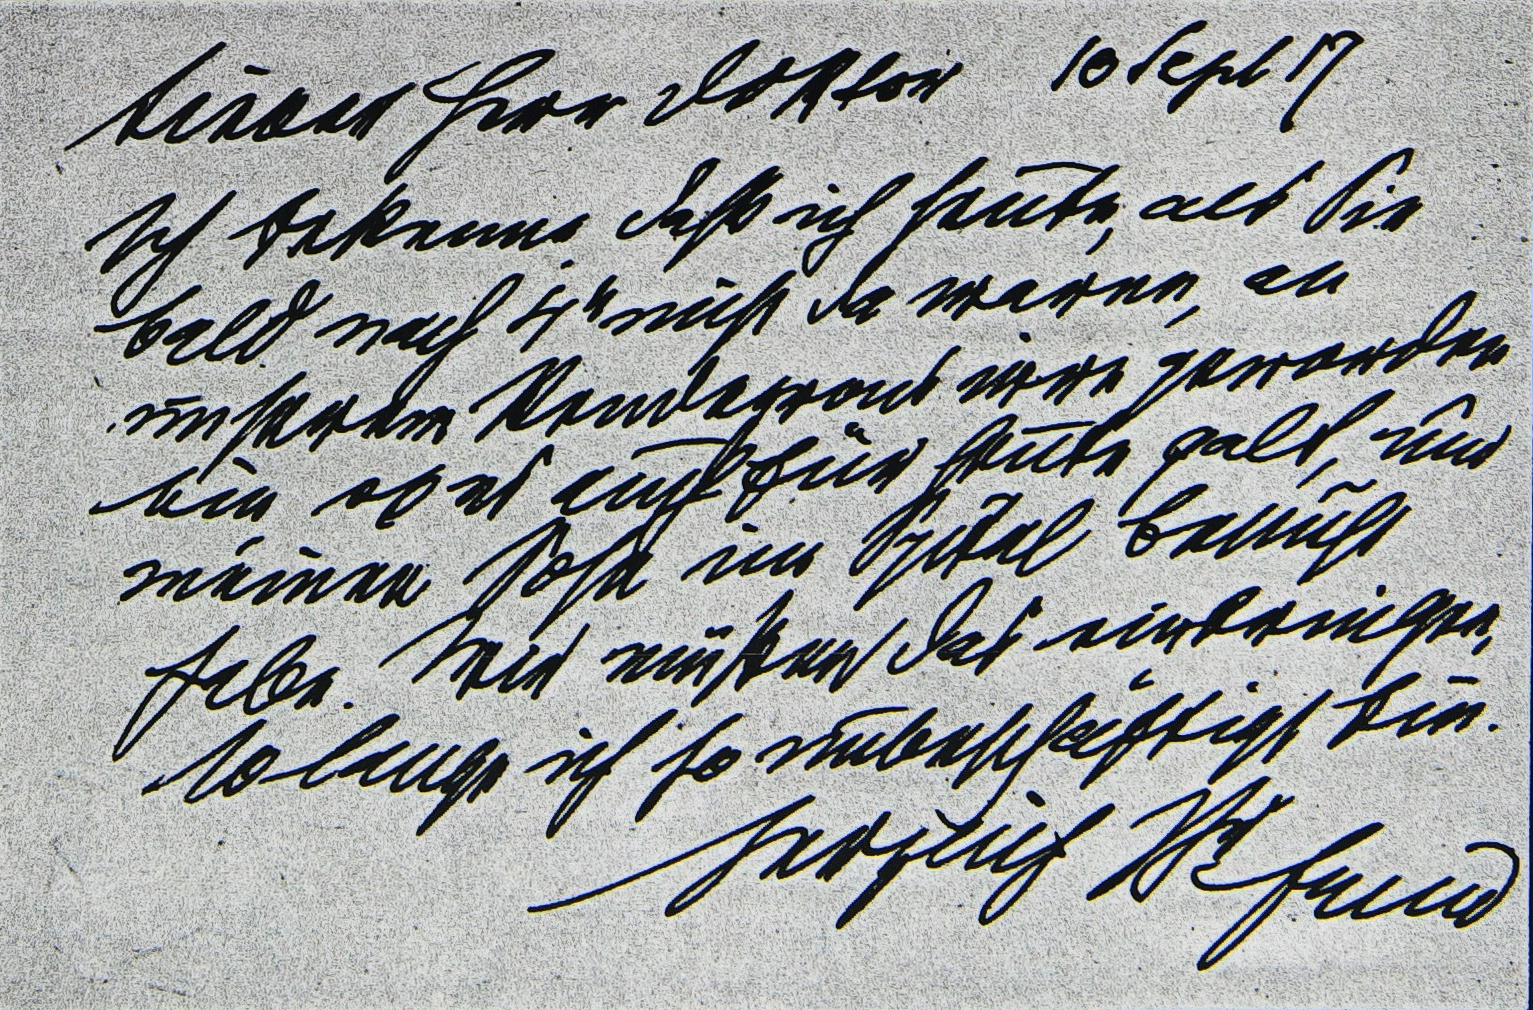 Lieber Herr Doktor 10 Sept 17
Ich bekenne, daß ich heute, als Sie
bald nach 4h nicht da waren, an
unserem Rendezvous irre geworden
bin ob es auch für heute galt, und
meinen Sohn im Spital besucht
habe. Wir müssen das einbringen,
so lange ich so unbeschäftigt bin.
Herzlich Ihr Freud